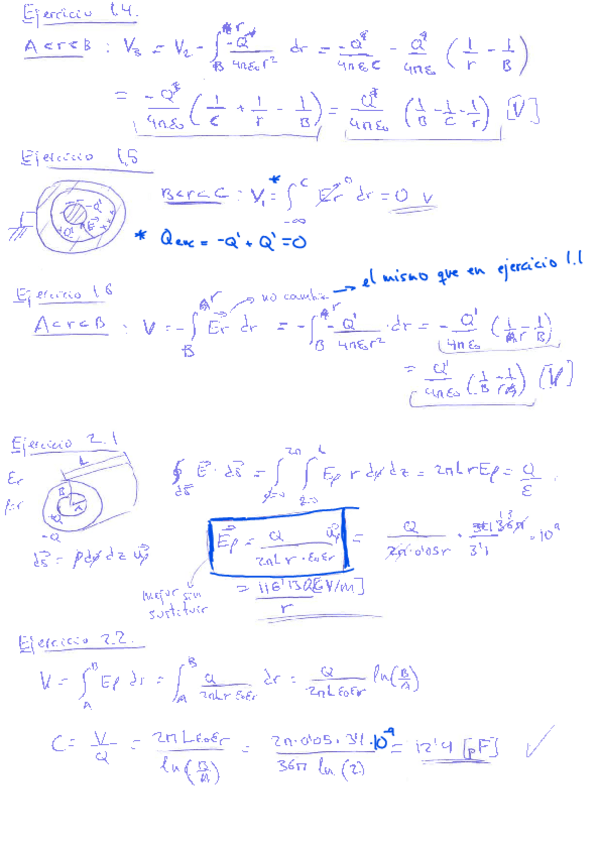 Ejercicio 1.4.
A<r<B : V₃ = V₂ - ∫_B^r -Q'/4πε₀r² dr = -Q'/4πε₀C - Q'/4πε₀ (1/r - 1/B)
= -Q'/4πε₀ (1/C + 1/r - 1/B) = Q'/4πε₀ (1/B - 1/C - 1/r) [V]
Ejercicio 1.5
-Q' +Q'
B<r<C : V₁ =* ∫_{-∞}^C Er dr = 0 V
* Qenc = -Q' + Q' = 0
Ejercicio 1.6
no cambia → el mismo que en ejercicio 1.1
A<r<B : V = -∫_B^r Er dr = -∫_B^r -Q'/4πε₀r² · dr = -Q'/4πε₀ (1/r - 1/B)
= Q'/4πε₀ (1/B - 1/r) [V]
Ejercicio 2.1
L
εr
B A
+Q
-Q
∮_ds E · ds = ∫_{φ=0}^{2π} ∫_{z=0}^{L} Eρ r dφ dz = 2πLrEρ = Q/ε
ds = ρ dφ dz uρ
Eρ = Q/2πLr·ε₀εr uρ = Q/2π·0'05r · 36π/3'1 · 10⁹
mejor sin sustituir
= 116'13Q/r [GV/m]
Ejercicio 2.2.
V = ∫_A^B Eρ dr = ∫_A^B Q/2πLrε₀εr dr = Q/2πLε₀εr ln(B/A)
C = V/Q = 2πLε₀εr/ln(B/A) = 2π·0'05·3'1·10⁻⁹/36π ln(2) = 12'4 [pF] ✓